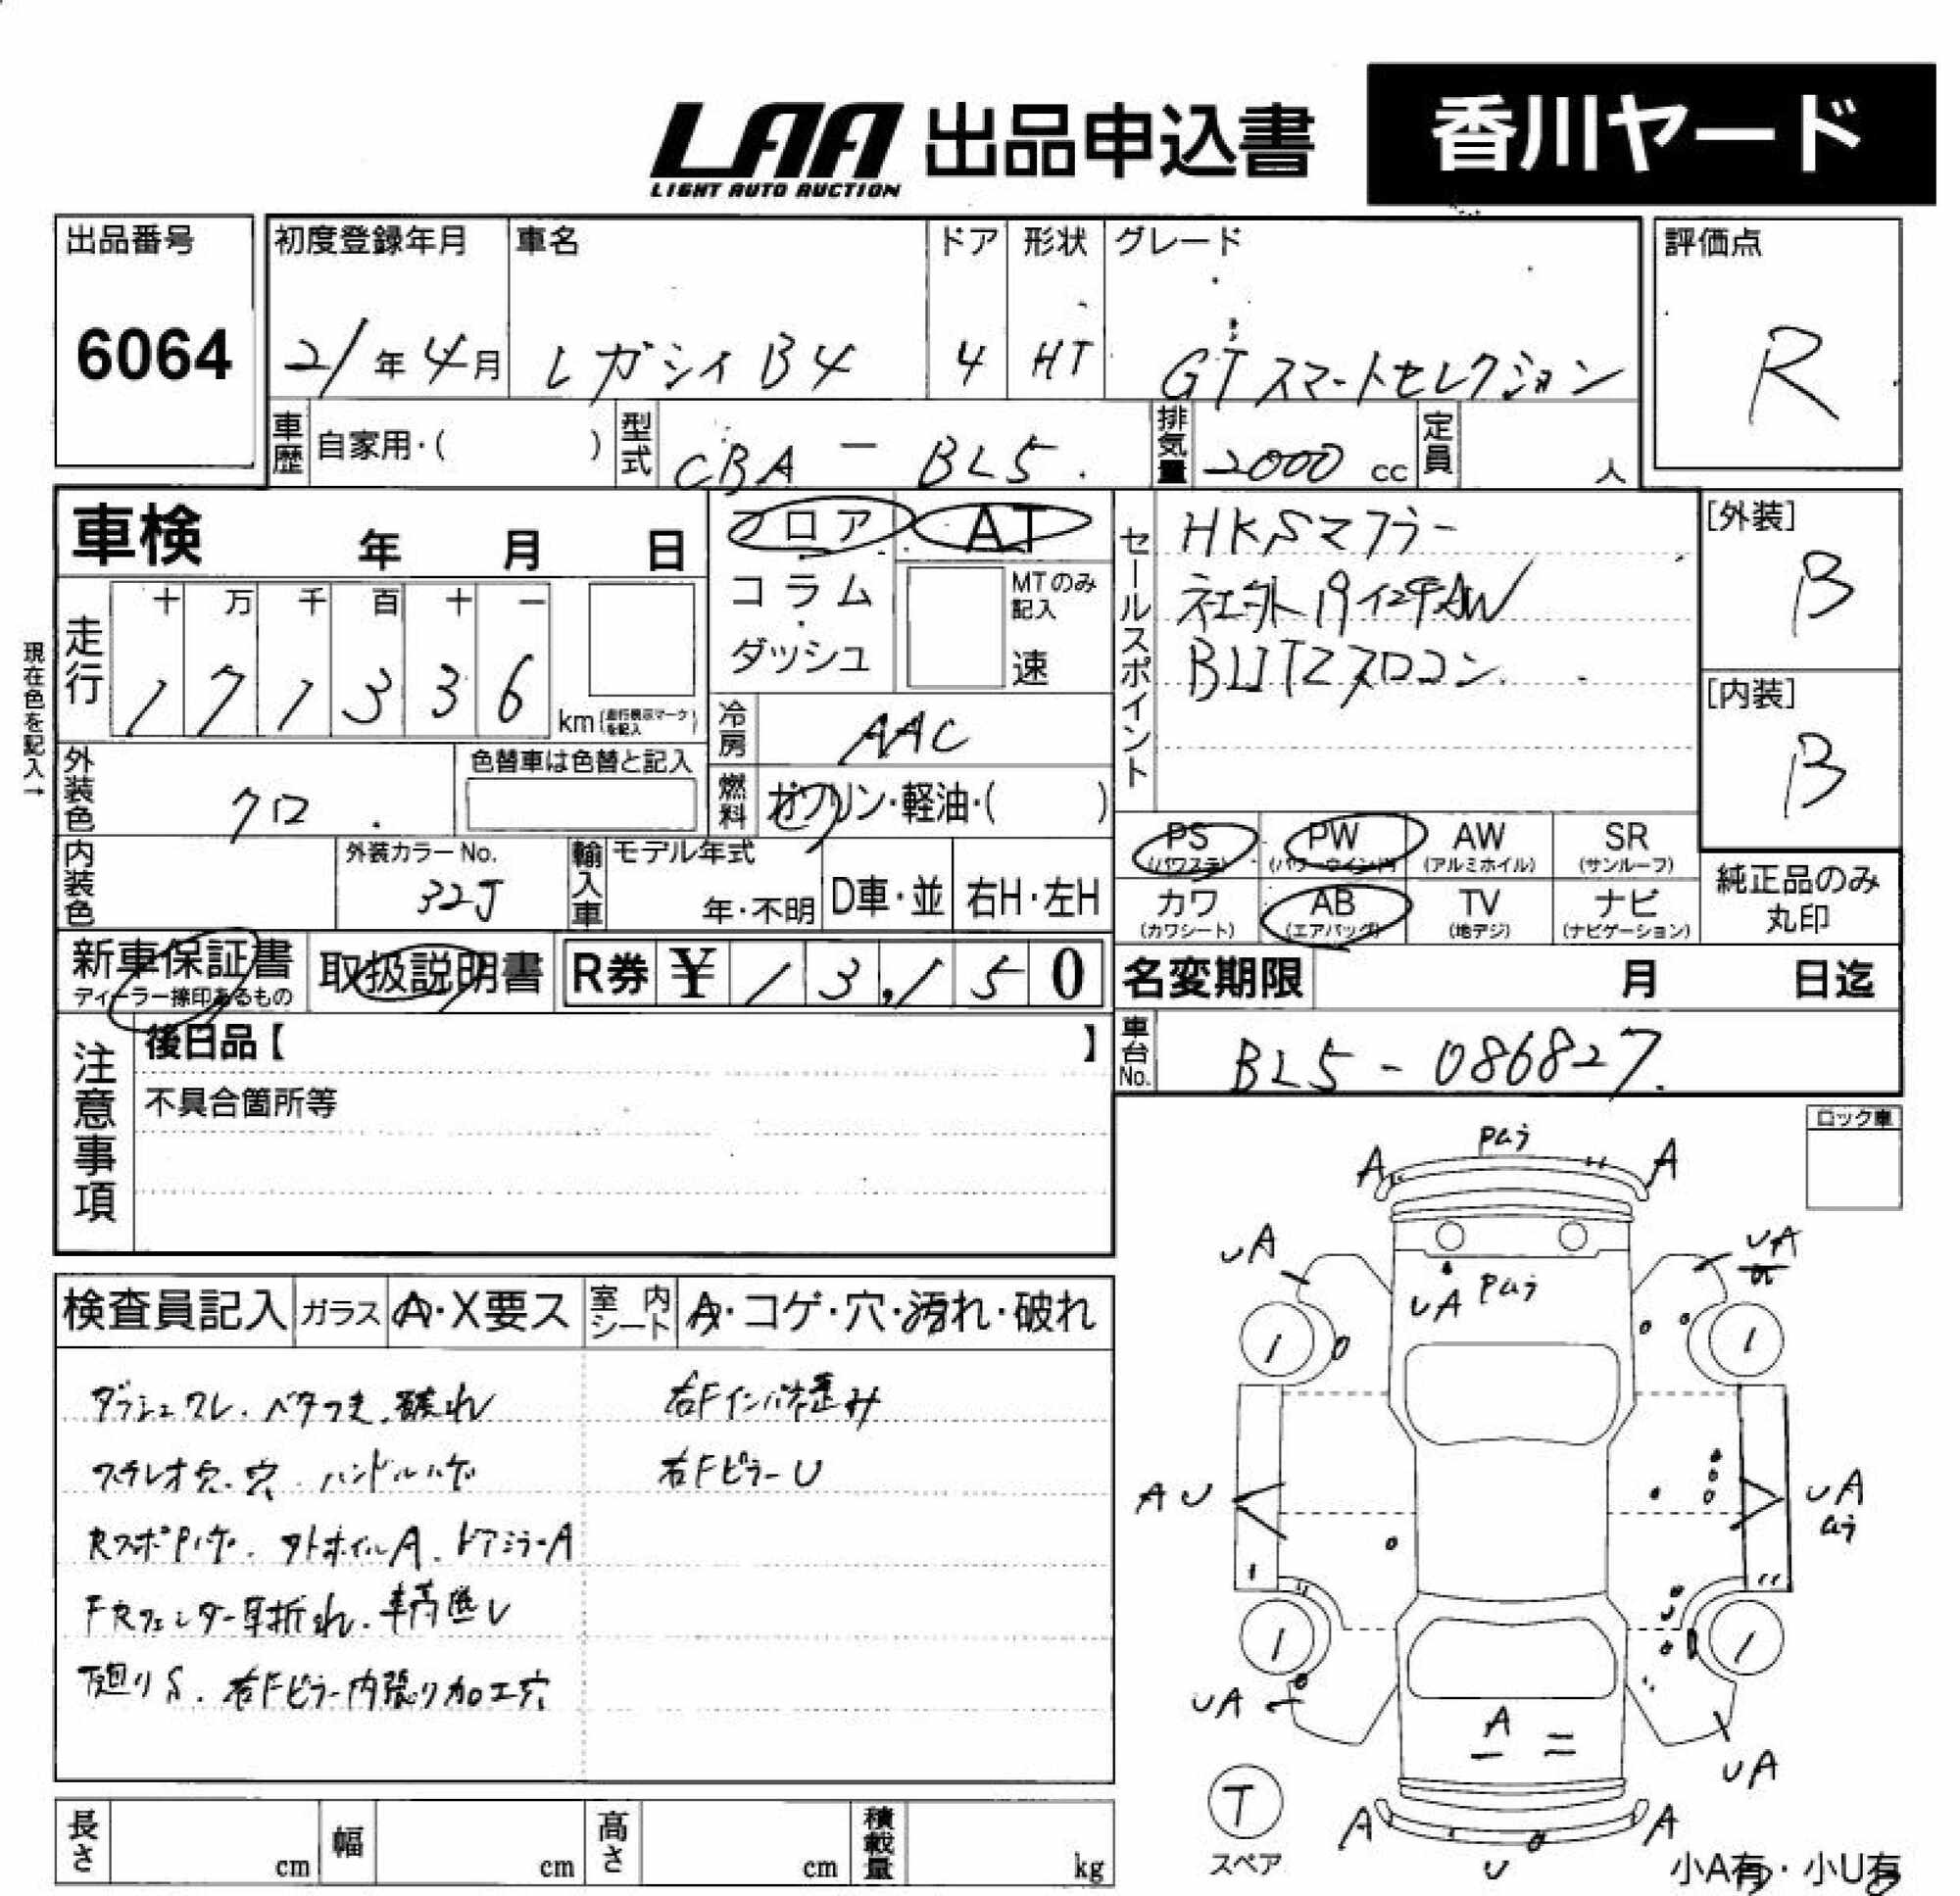 LAA 出品申込書 香川ヤード
LIGHT AUTO AUCTION
出品番号 初度登録年月 車名 ドア 形状 グレード 評価点
6064 21年4月 レガシィB4 4 HT GTスマートセレクション R
車歴 自家用・( ) 型式 CBA-BL5 排気量 2000cc 定員 人
車検 年 月 日
フロア AT
コラム
ダッシュ
MTのみ記入
速
セールスポイント
HKSマフラー
社外19インチAW
BLITZスロコン
[外装]
B
[内装]
B
現在色を記入→
走行 十 万 千 百 十 一
1 7 1 3 3 6 km(走行表示マークを記入)
冷房 AAC
外装色 クロ 色替車は色替と記入
燃料 ガソリン・軽油・( )
内装色 外装カラーNo. 32J
輸入車 モデル年式 年・不明 D車・並 右H・左H
PS (パワステ) PW (パワーウインドウ) AW (アルミホイル) SR (サンルーフ)
カワ (カワシート) AB (エアバッグ) TV (地デジ) ナビ (ナビゲーション)
純正品のみ
丸印
新車保証書 取扱説明書 R券 ¥ 13,150
ディーラー捺印あるもの
名変期限 月 日迄
車台No. BL5-086827
注意事項
後日品【 】
不具合箇所等
ロック車
検査員記入 ガラス A・X要ス 室内シート A・コゲ・穴・汚れ・破れ
ダッシュワレ、ベタつき、破れ 右Fインパネ歪み
ステレオ欠、穴、ハンドルハゲ 右FピラーU
RスポPハゲ、タトホイルA、ドアミラーA
FRフェンダー耳折れ、車高低し
下廻りS、右Fピラー内張り加工穴
長さ cm 幅 cm 高さ cm 積載量 kg
A A
UA UA
UA
1 1
AU UA
1 1
UA A UA
T
スペア
A U A
小A有・小U有